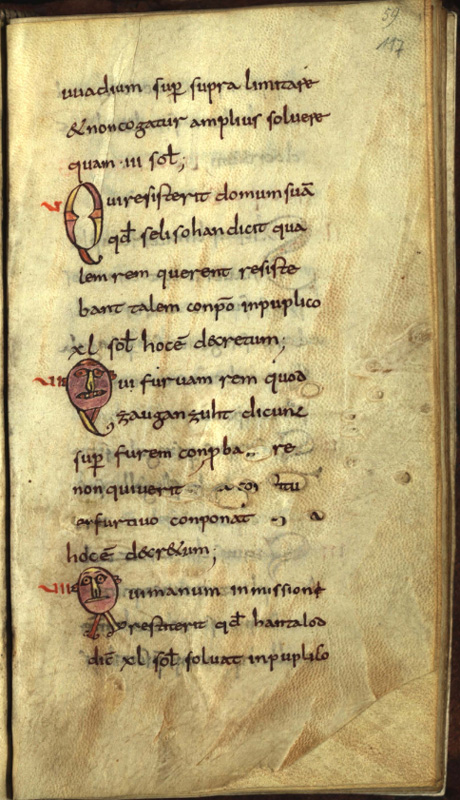 59
117
uuadium sup̄ supra limitare
& non cogatur amplius soluere
quam ·iii· sol̄;
v Qui resisterit domum suā
qd̄ selisohan dicit qua
lem rem querent resiste
bant talem conpō inpuplico
xl sol̄ hoc ē decretum;
vii Qui furuam rem quod
zauganzuht dicunt
sup̄ furem conpba re
non quiuerit
furtiuo conponat
hoc ē decr&um;
viii Qui manum inmissione
resisterit qd̄ hantalod
dic̄ xl sol̄ soluat inpuplico